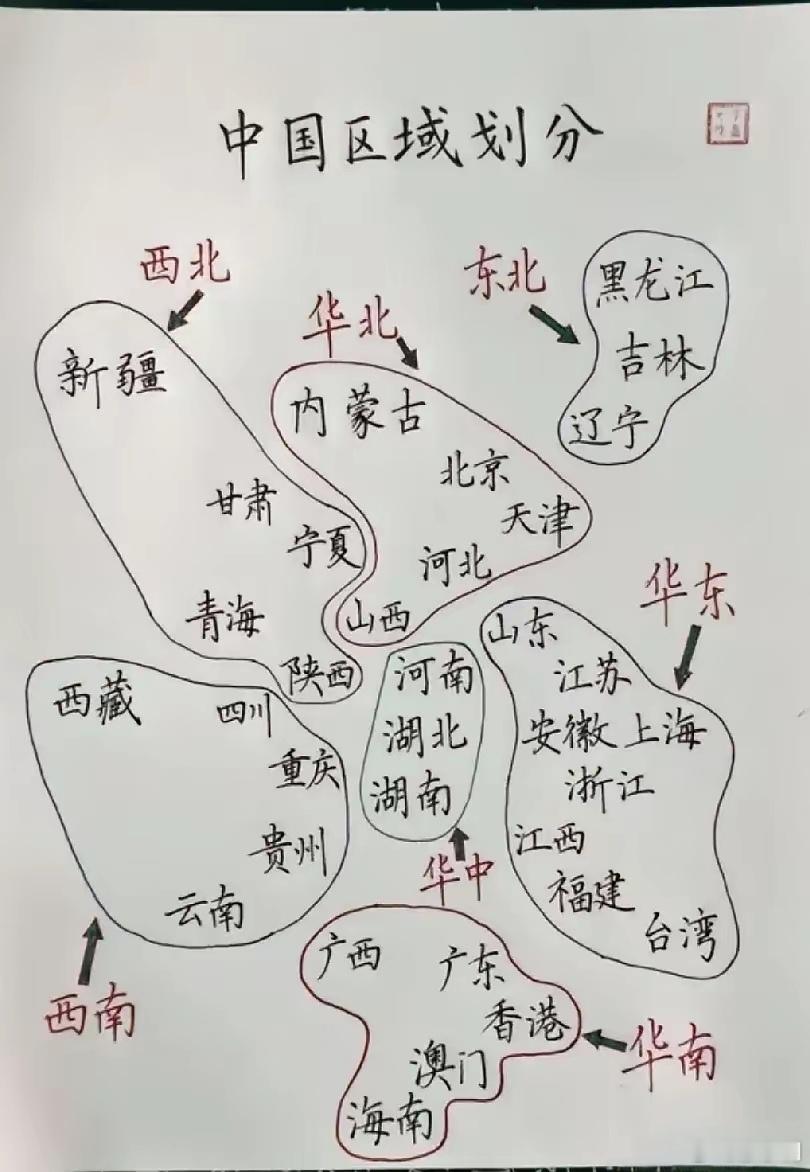 中国区域划分
西北
东北
华北
黑龙江
吉林
辽宁
新疆
甘肃
宁夏
青海
陕西
内蒙古
北京
天津
河北
山西
华东
山东
江苏
安徽 上海
浙江
江西
福建
台湾
河南
湖北
湖南
华中
西藏
四川
重庆
贵州
云南
西南
广西
广东
香港
澳门
海南
华南